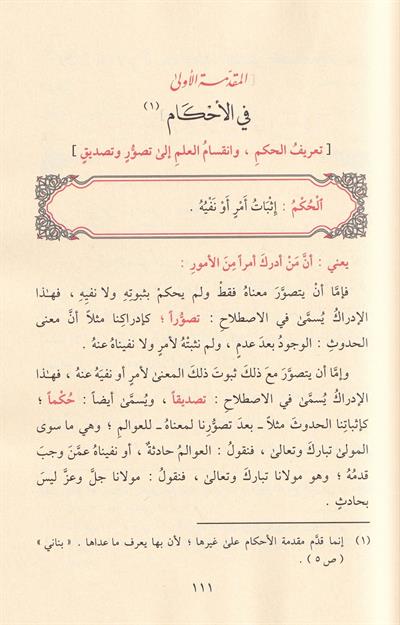 [ المقدّمة الأولىٰ
في الأحكام (١)
[ تعريفُ الحكمِ ، وانقسامُ العلمِ إلىٰ تصوُّرٍ وتصديقٍ ]
ٱلْحُكْمُ : إِثْبَاتُ أَمْرٍ أَوْ نَفْيُهُ .
يعني : أنَّ مَنْ أدركَ أمراً مِنَ الأمورِ :
فإمَّا أنْ يتصوَّرَ معناهُ فقطْ ولم يحكمْ بثبوتِهِ ولا نفيِهِ ، فهـٰذا
الإدراكُ يُسمَّىٰ في الاصطلاحِ : تصوُّراً ؛ كإدراكِنا مثلاً أنَّ معنى
الحدوثِ : الوجودُ بعدَ عدمٍ ، ولم نثبتْهُ لأمرٍ ولا نفيناهُ عنهُ .
وإمَّا أن يتصوَّرَ معَ ذلكَ ثبوتَ ذلكَ المعنىٰ لأمرٍ أو نفيَهُ عنهُ ، فهـٰذا
الإدراكُ يُسمَّىٰ في الاصطلاحِ : تصديقاً ، ويُسمَّىٰ أيضاً : حُكْماً ؛
كإثباتِنا الحدوثَ مثلاً ـ بعدَ تصوُّرِنا لمعناهُ ـ للعوالمِ ؛ وهي ما سوى
المولىٰ تباركَ وتعالىٰ ، فنقولُ : العوالمُ حادثةٌ ، أو نفيناهُ عمَّن وجبَ
قدمُهُ ؛ وهو مولانا تباركَ وتعالىٰ ، فنقولُ : مولانا جلَّ وعزَّ ليسَ
بحادثٍ .
(١) إنما قدَّم مقدمة الأحكام علىٰ غيرها ؛ لأن بها يعرف ما عداها . « بناني »
( ص ٥ ) .
١١١